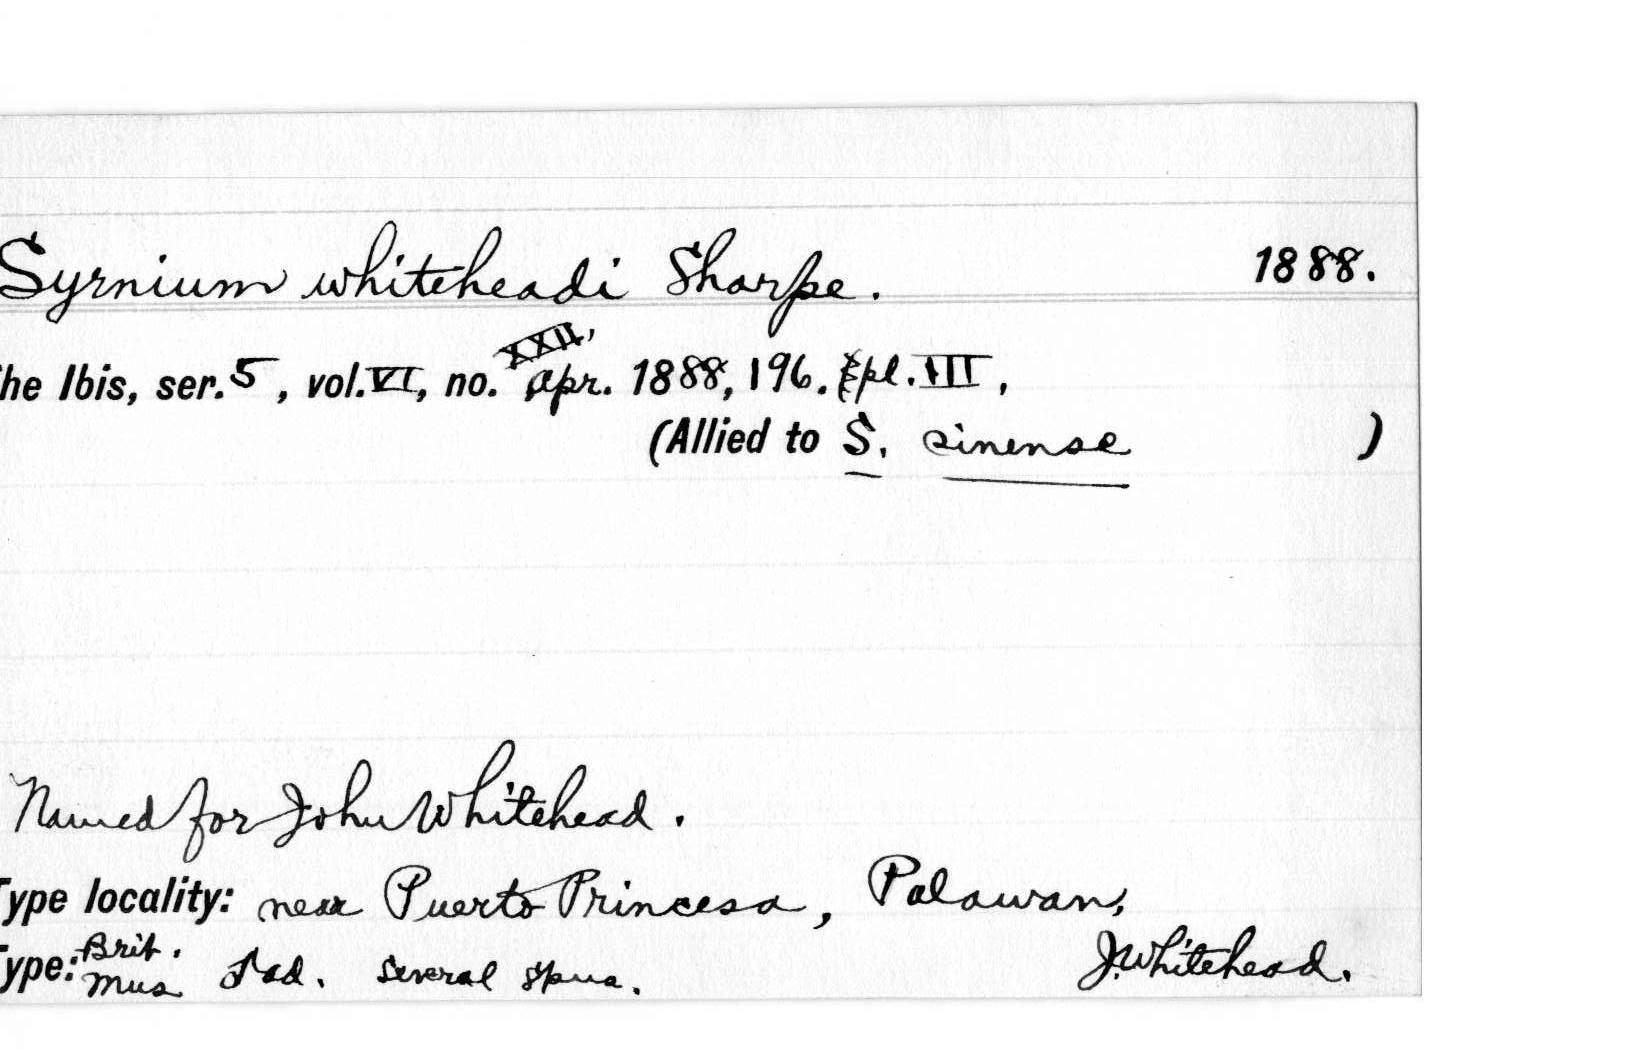 Syrnium whiteheadi Sharpe. 1888.
XXII,
he Ibis, ser. 5, vol. VI, no. apr. 1888, 196. pl. III,
(Allied to S. sinense )
Named for John Whitehead.
Type locality: near Puerto Princesa, Palawan,
Type: Brit. Mus ad. several spms. J. Whitehead.